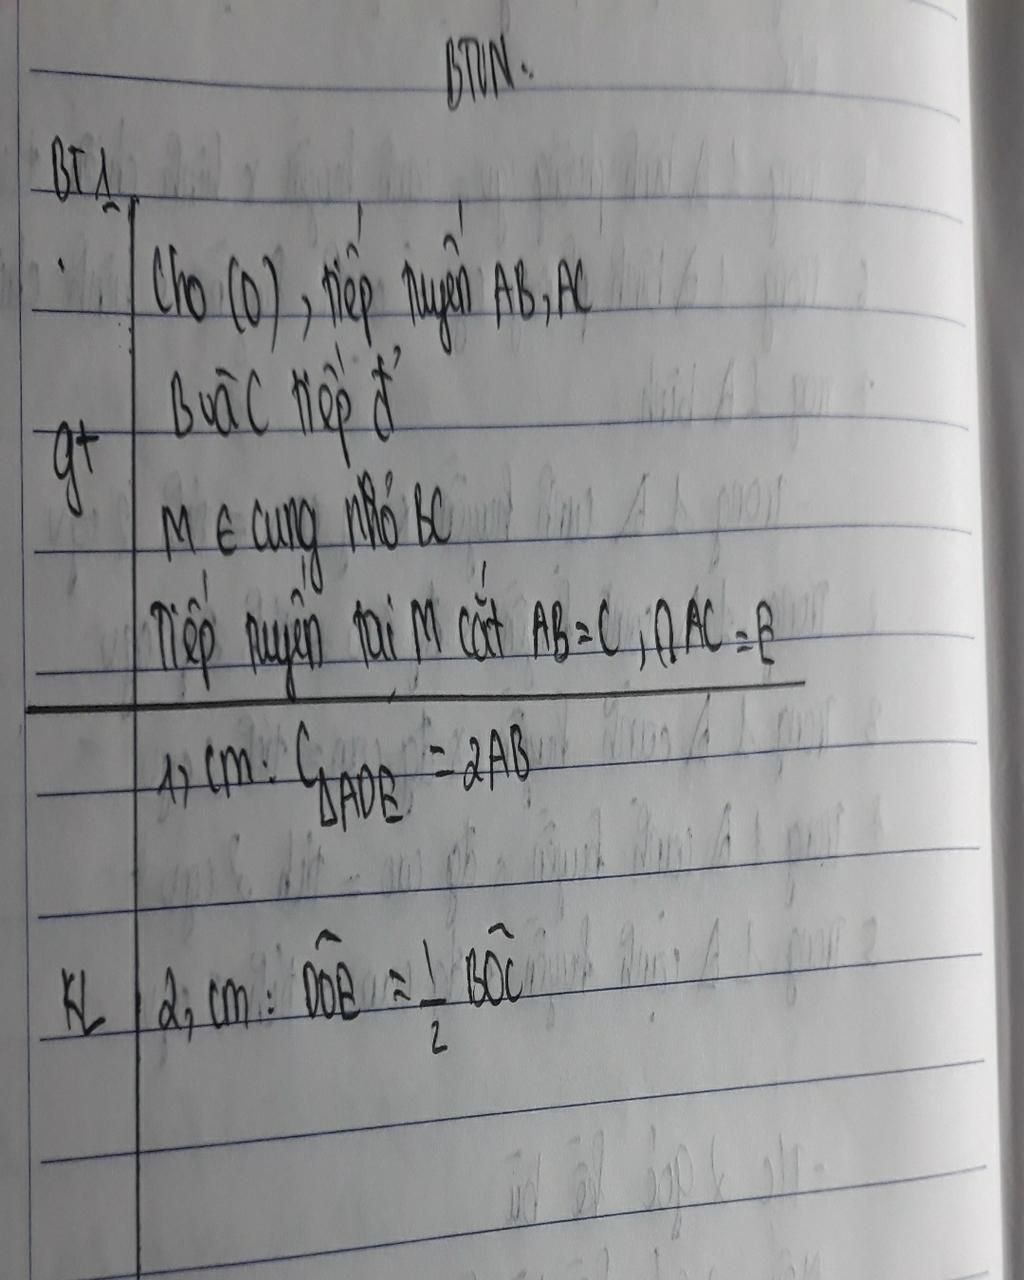 BTVN.
BT1
Cho (O), tiếp tuyến AB, AC
B và C tiếp đ'
gt
M ∈ cung nhỏ BC
Tiếp tuyến tại M cắt AB = C, ∩ AC = E
1, cm: C△ADE = 2AB
KL
2, cm: DÔE = 1/2 BÔC